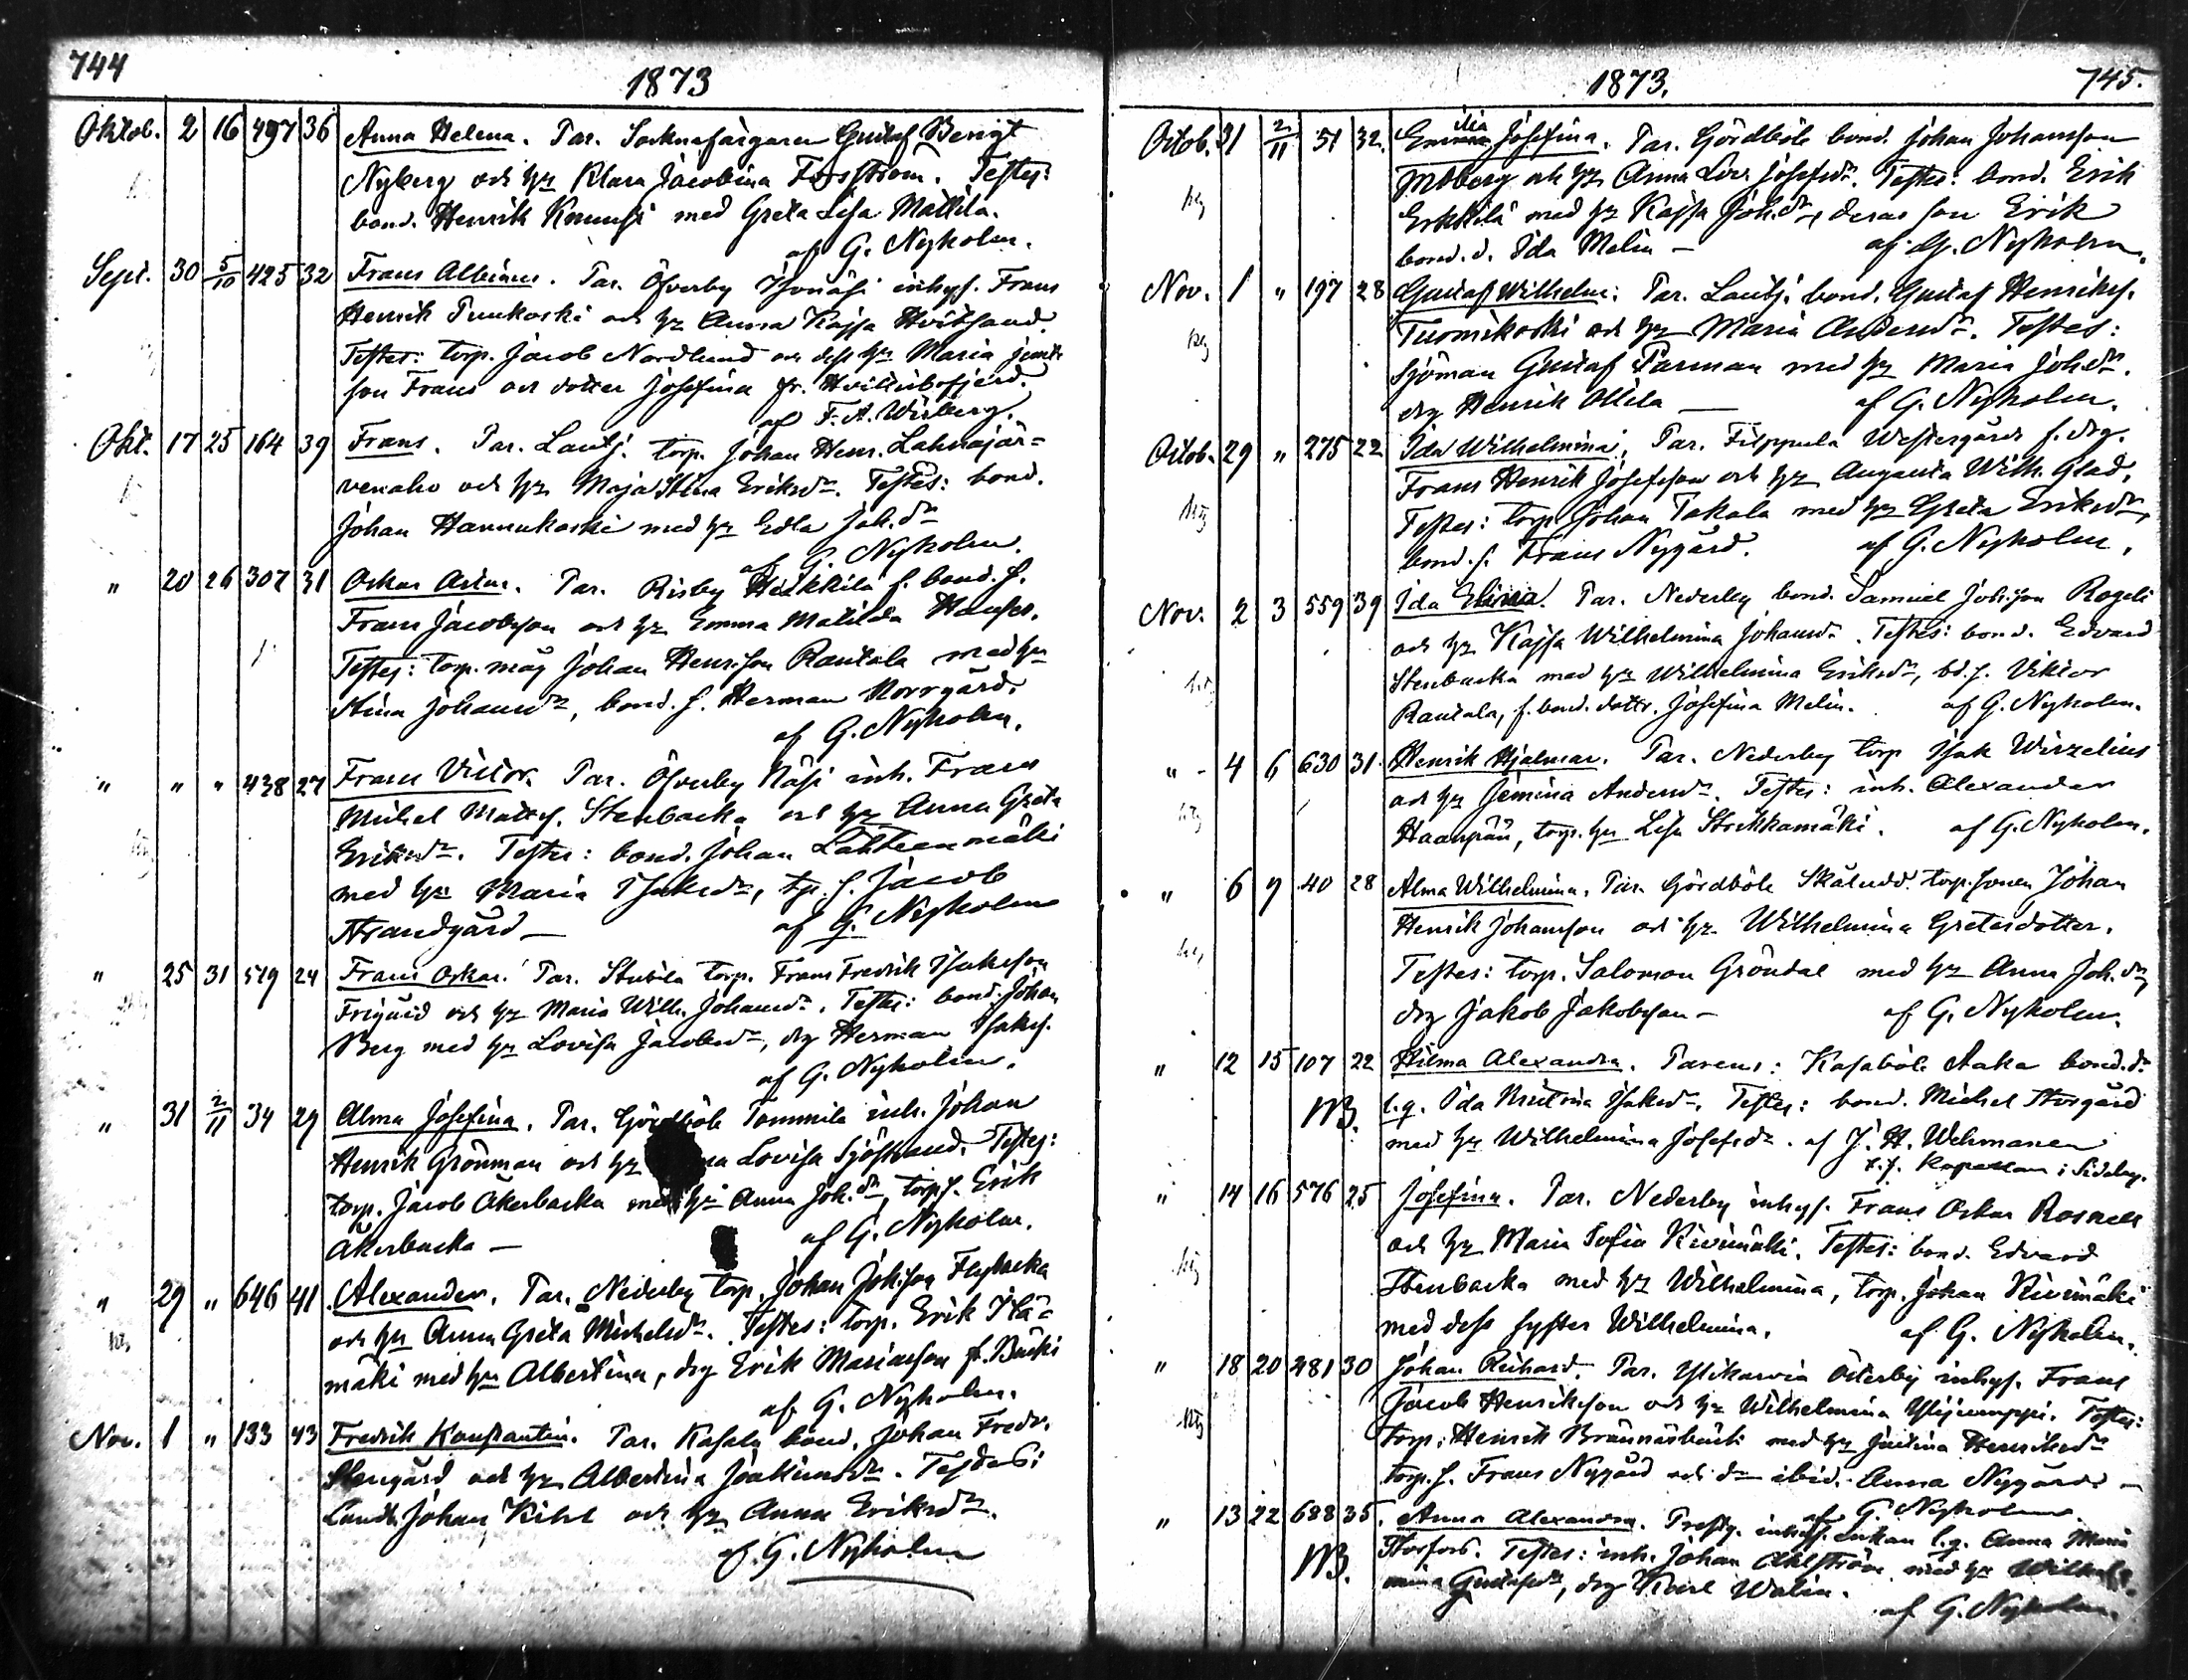 744
1873
Oktob. 2 16 497 36 Anna Helena. Par. Socknefärgaren Gustaf Bengt
Nyberg och hu Klara Jacobina Forsström. Testes:
bond. Henrik med Greta Lisa Mattila.
af G. Nyholm.
Sept. 30 5/10 425 32 Frans Albinus. Par. Öfverby inhys. Frans
Henrik Punkoski och hu Anna Kajsa Hvitsand.
Testes: torp. Jacob Nordlund och dess hu Maria jemte
son Frans och dotter Josefina fr. Hvittisbofjerd.
af F. A. Wirberg.
Okt. 17 25 164 39 Frans. Par. Lautj. torp. Johan Henr. Lahnajär-
venaho och hu Maja Stina Eriksdr. Testes: bond.
Johan Hannukoski med hu Edla Joh.dr
af G. Nyholm.
" 20 26 307 31 Oskar. Par. Risby Heikkilä f. bond. s.
Frans Jacobsson och hu Emma Matilda Hansdr.
Testes: torp. måg Johan Henrsson Rantala med hu
Stina Johansdr, bond. s. Herman Norrgård.
af G. Nyholm.
" " " 438 27 Frans Victor. Par. Öfverby Näsi inh. Frans
Michel Matts. Stenbacka och hu Anna Greta
Eriksdr. Testes: bond. Johan Lähteenmäki
med hu Maria Isaksdr, tp. s. Jacob
Strandgård — af G. Nyholm
" 25 31 519 24 Frans Oskar. Par. Stubila torp. Frans Fredrik Isaksson
Frigård och hu Maria Wilh. Johansdr. Testes: bond. Johan
Berg med hu Lovisa Jacobsdr, drg Herman Isaks.
af G. Nyholm.
" 31 2/11 34 29 Alma Josefina. Par. Gördböle Tommila inh. Johan
Henrik Grönman och hu Lovisa Sjöstrand. Testes:
torp. Jacob Åkerbacka med hu Anna Joh.dr, torp.s. Erik
Åkerbacka — af G. Nyholm.
" 29 " 646 41 Alexander. Par. Nederby torp. Johan Johsson Flybacka
och hu Anna Greta Michelsdr. Testes: torp. Erik Ylä-
mäki med hu Albertina, drg Erik Mariasson fr. Bäcki
af G. Nyholm.
Nov. 1 " 133 43 Fredrik Konstantin. Par. Kasaby bond. Johan Fredr.
Stengård och hu Albertina Joakimsdr. Testes:
Landb. Johan Kihl och hu Anna Eriksdr.
af G. Nyholm
1873.
745.
Octob. 31 2/11 51 32. Emilia Josefina. Par. Gördböle bond. Johan Johansson
Moberg och hu Anna Lov. Josefsdr. Testes: bond. Erik
Erkkilä med hu Kajsa Joh.dr, deras son Erik
bond. d. Ida Melin — af G. Nyholm.
Nov. 1 " 197 28 Gustaf Wilhelm. Par. Lautj. bond. Gustaf Henriks.
Tuomikoski och hu Maria Andersdr. Testes:
Sjöman Gustaf Parman med hu Maria Johsdr.
drg Henrik Ollila — af G. Nyholm.
Octob. 29 " 275 22 Ida Wilhelmina. Par. Filppula Westergårds f. drg.
Frans Henrik Josefsson och hu Augusta Wilh. Glad.
Testes: torp. Johan Takala med hu Greta Eriksdr,
bond. s. Frans Nygård. af G. Nyholm.
Nov. 2 3 559 39 Ida Elina. Par. Nederby bond. Samuel Johsson Rogell
och hu Kajsa Wilhelmina Johansdr. Testes: bond. Edvard
Stenbacka med hu Wilhelmina Eriksdr, bd. s. Viktor
Rantala, f. bond. dottr. Josefina Melin. af G. Nyholm.
" 4 6 630 31. Henrik Hjalmar. Par. Nederby torp Isak Wirzelius
och hu Jemina Andersdr. Testes: inh. Alexander
Haanpää, torp. hu Lisa Strikkamäki. af G. Nyholm.
" 6 9 40 28 Alma Wilhelmina. Par. Gördböle Skaludd. torp. sonen Johan
Henrik Johansson och hu Wilhelmina Gretasdotter.
Testes: torp. Salomon Gröndal med hu Anna Joh.dr,
drg Jakob Jakobsson — af G. Nyholm.
" 12 15 107 22 Hilma Alexandra. Parens: Kasaböle Aaka bond.dr
NB. l.q. Ida Kristina Isaksdr. Testes: bond. Michel Storgård
med hu Wilhelmina Josefsdr. af J. H. Wehmanen
t.f. Kapellan i Sideby.
" 14 16 576 25 Josefina. Par. Nederby inhys. Frans Oskar Rosnell
och hu Maria Sofia Kivimäki. Testes: bond. Edvard
Stenbacka med hu Wilhelmina, torp. Johan Kivimäki
med dess syster Wilhelmina. af G. Nyholm.
" 18 20 481 30 Johan Richard. Par. Ylikarvia Österby inhys. Frans
Jacob Henriksson och hu Wilhelmina. Testes:
torp. Henrik Brännäsbäck med hu Justina Henriksdr
torp. s. Frans Nygård och dr ibid. Anna Nygård —
af G. Nyholm
" 13 22 688 35. Anna Alexandra. Prestg. inhys. enkan l.q. Anna Maria
NB. Storfors. Testes: inh. Johan Ahlström med hu Wilhel-
mina Gustafsdr, drg Karl Walin.
af G. Nyholm.